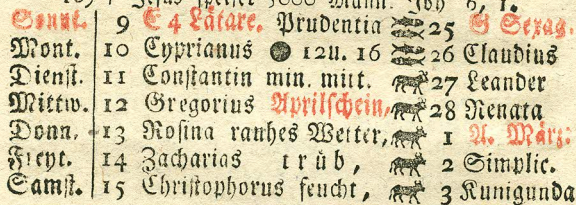 Jesus speiset 5000 Mann. Joh 6, 1.
Sonnt. 9 C 4 Lätare. Prudentia 25 G Sexag.
Mont. 10 Cyprianus 12 U. 16 26 Claudius
Dienst. 11 Constantin min. mitt. 27 Leander
Mittw. 12 Gregorius Aprilschein, 28 Renata
Donn. 13 Rosina rauhes Wetter, 1 A. März:
Freyt. 14 Zacharias trüb, 2 Simplic.
Samst. 15 Christophorus feucht, 3 Kunigunda